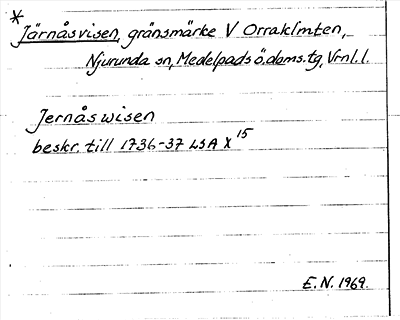 * Järnåsvisen, gränsmärke V Orraklmten,
Njurunda sn, Medelpads ö. doms. tg, Vrnl. l.
Jernåswisen
beskr. till 1736-37 LSA X 15
E.N. 1969.